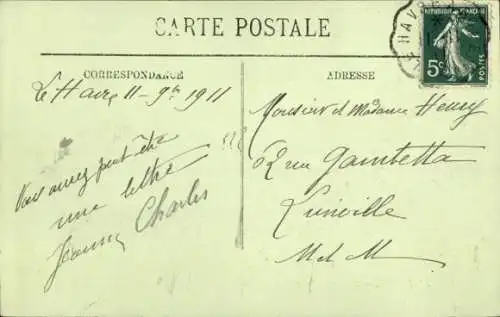 CARTE POSTALE
CORRESPONDANCE
Le Havre 11-9bre 1911
Vous aurez peut être
une lettre
Jeanne Charles
ADRESSE
Monsieur et Madame Henry
62 rue Gambetta
Lunéville
M et M
HAV
REPUBLIQUE FRANÇAISE
5c
POSTES